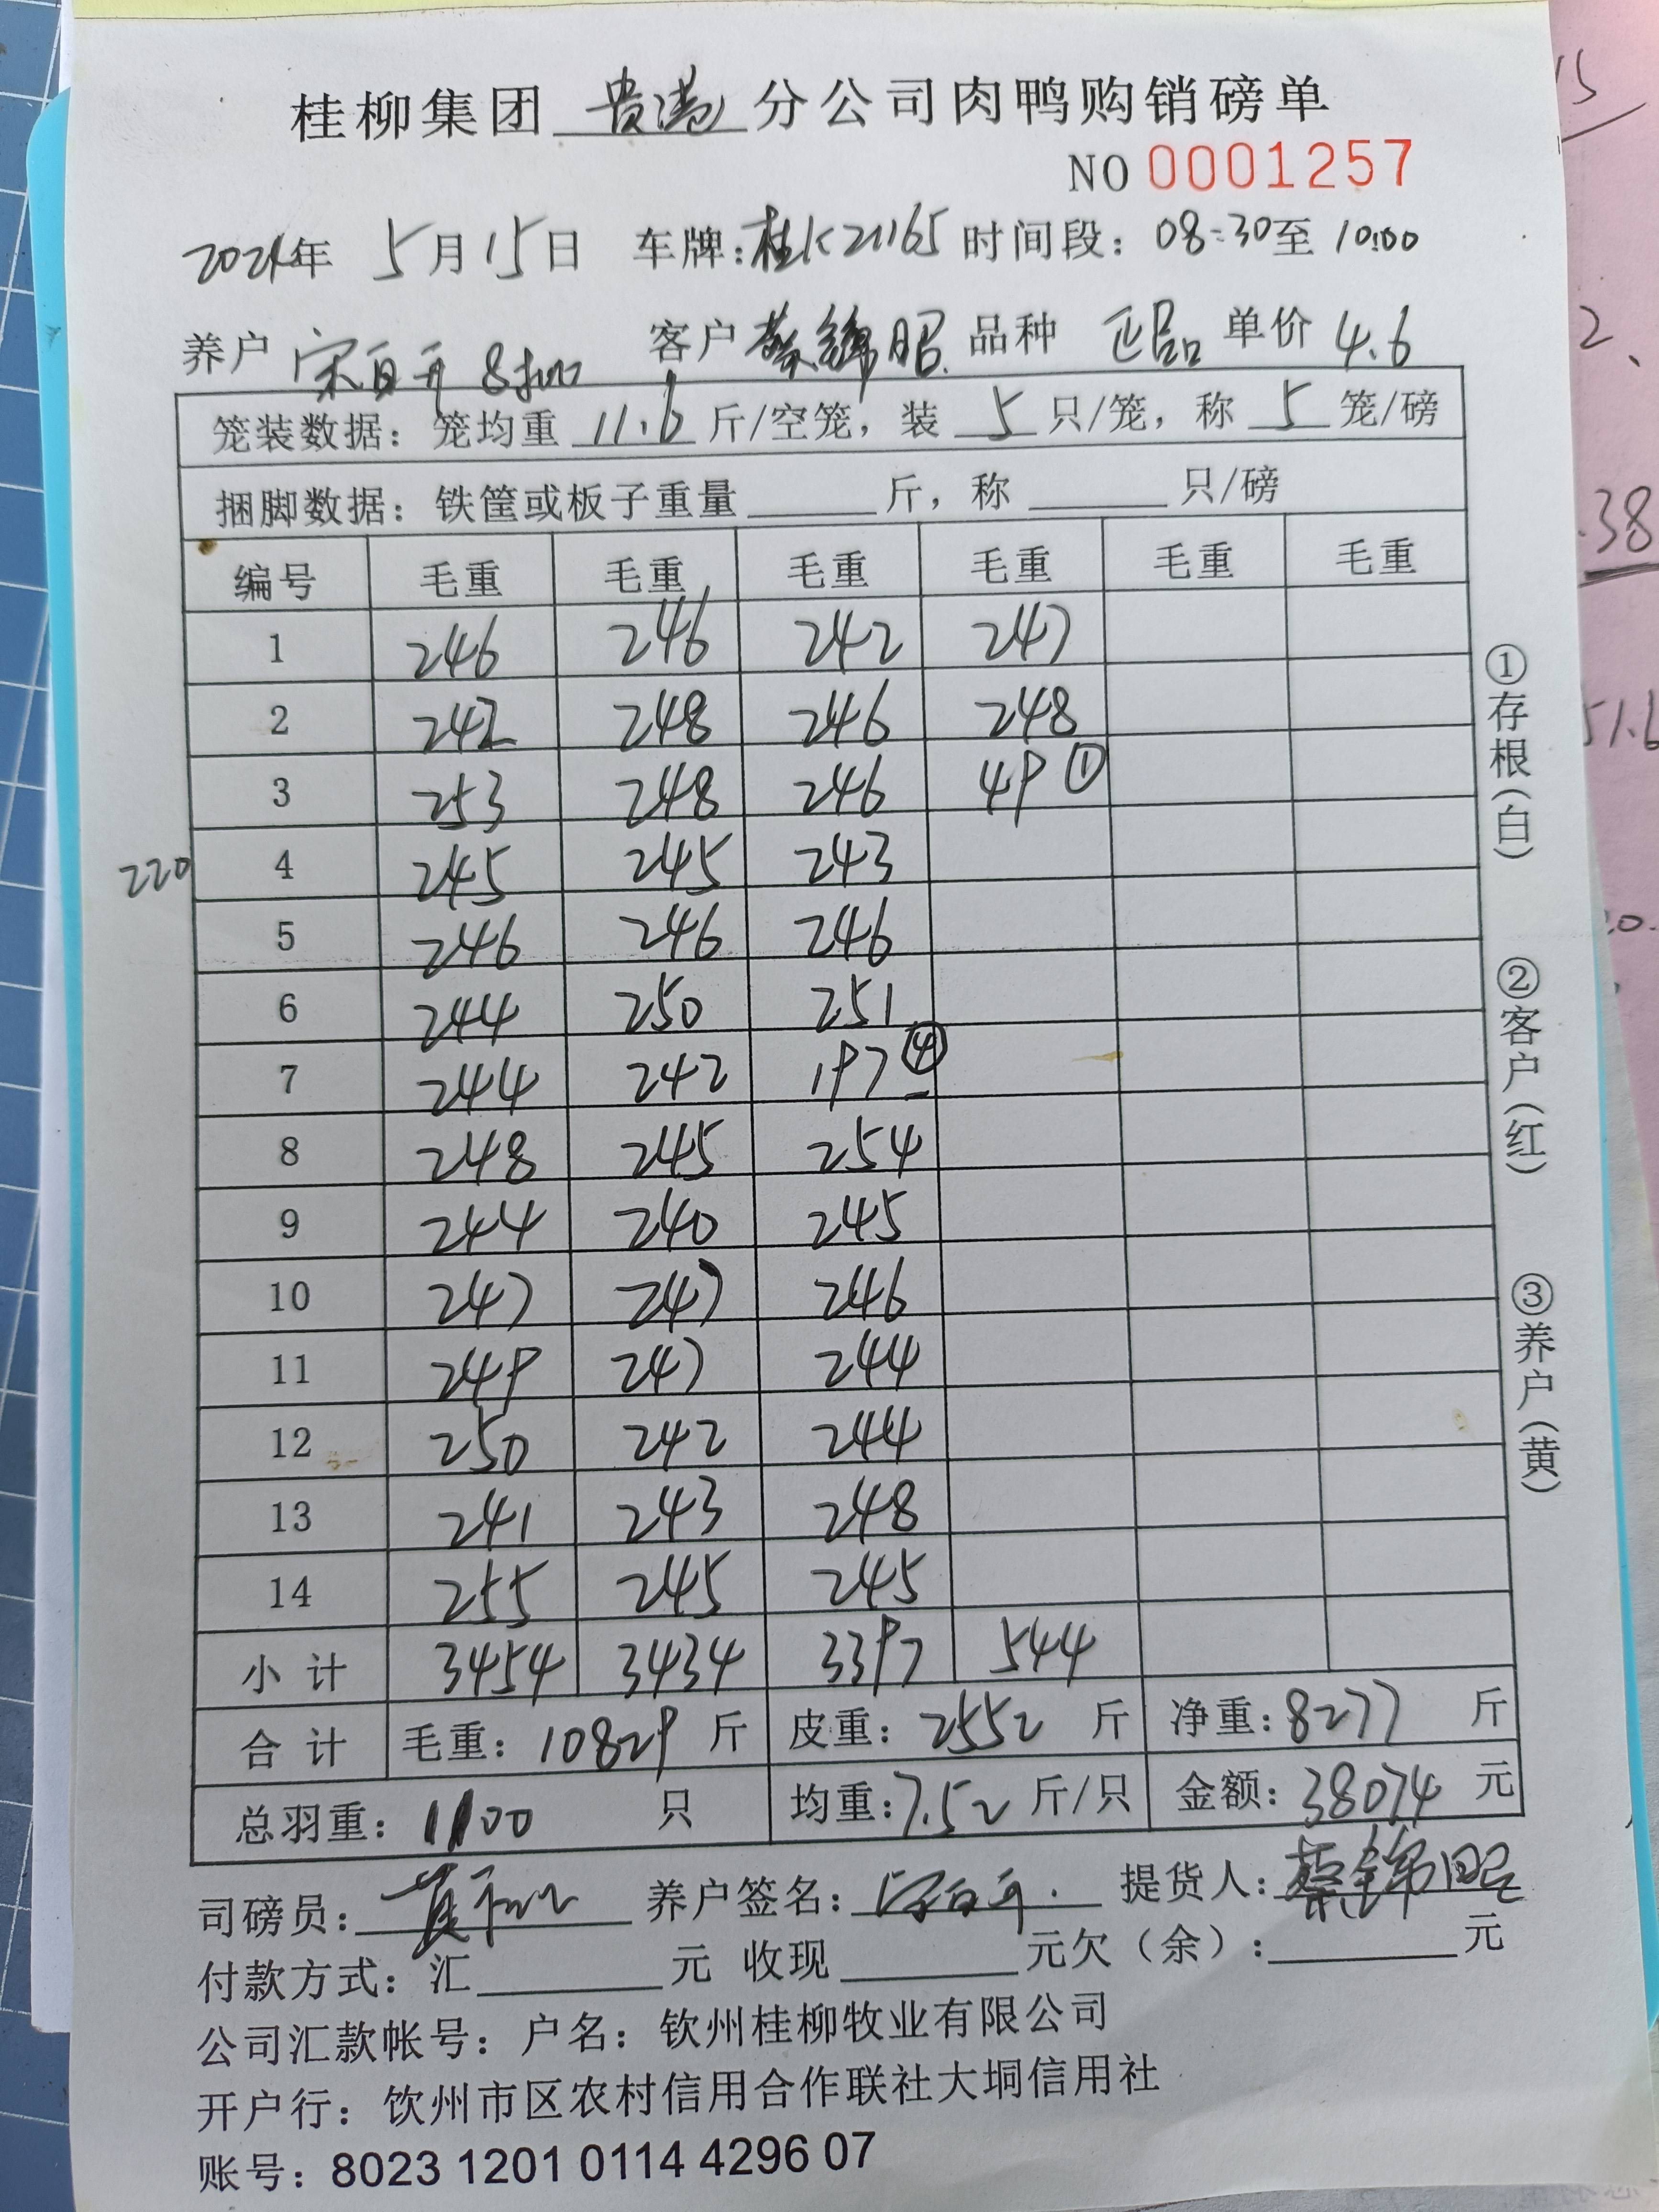 桂柳集团 贵港 分公司肉鸭购销磅单
NO 0001257
2024年 5月15日 车牌:桂K21165 时间段: 08:30至 10:00
养户 宋百开 8扣 客户 蔡锦昭 品种 正品 单价 4.6
笼装数据: 笼均重 11.6 斤/空笼, 装 5 只/笼, 称 5 笼/磅
捆脚数据: 铁筐或板子重量 斤, 称 只/磅
编号 毛重 毛重 毛重 毛重 毛重 毛重
1 246 246 242 247
2 242 248 246 248
3 253 248 246 49 ①
220 4 245 245 243
5 246 246 246
6 244 250 251
7 244 242 197 ④
8 248 245 254
9 244 240 245
10 247 247 246
11 249 247 244
12 250 242 244
13 241 243 248
14 255 245 245
小计 3454 3434 3397 544
合计 毛重: 10829 斤 皮重: 2552 斤 净重: 8277 斤
总羽重: 1100 只 均重: 7.52 斤/只 金额: 38074 元
司磅员: 养户签名: 宋百开. 提货人: 蔡锦昭
付款方式: 汇 元 收现 元欠(余): 元
公司汇款帐号: 户名: 钦州桂柳牧业有限公司
开户行: 钦州市区农村信用合作联社大垌信用社
账号: 8023 1201 0114 4296 07
①存根(白)
②客户(红)
③养户(黄)
15
2、
.38
51.6